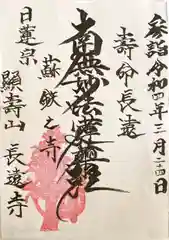 参詣令和四年三月二十四日
壽命長遠
南無妙法蓮華経
蘇鉄之寺
日蓮宗
顯壽山長遠寺